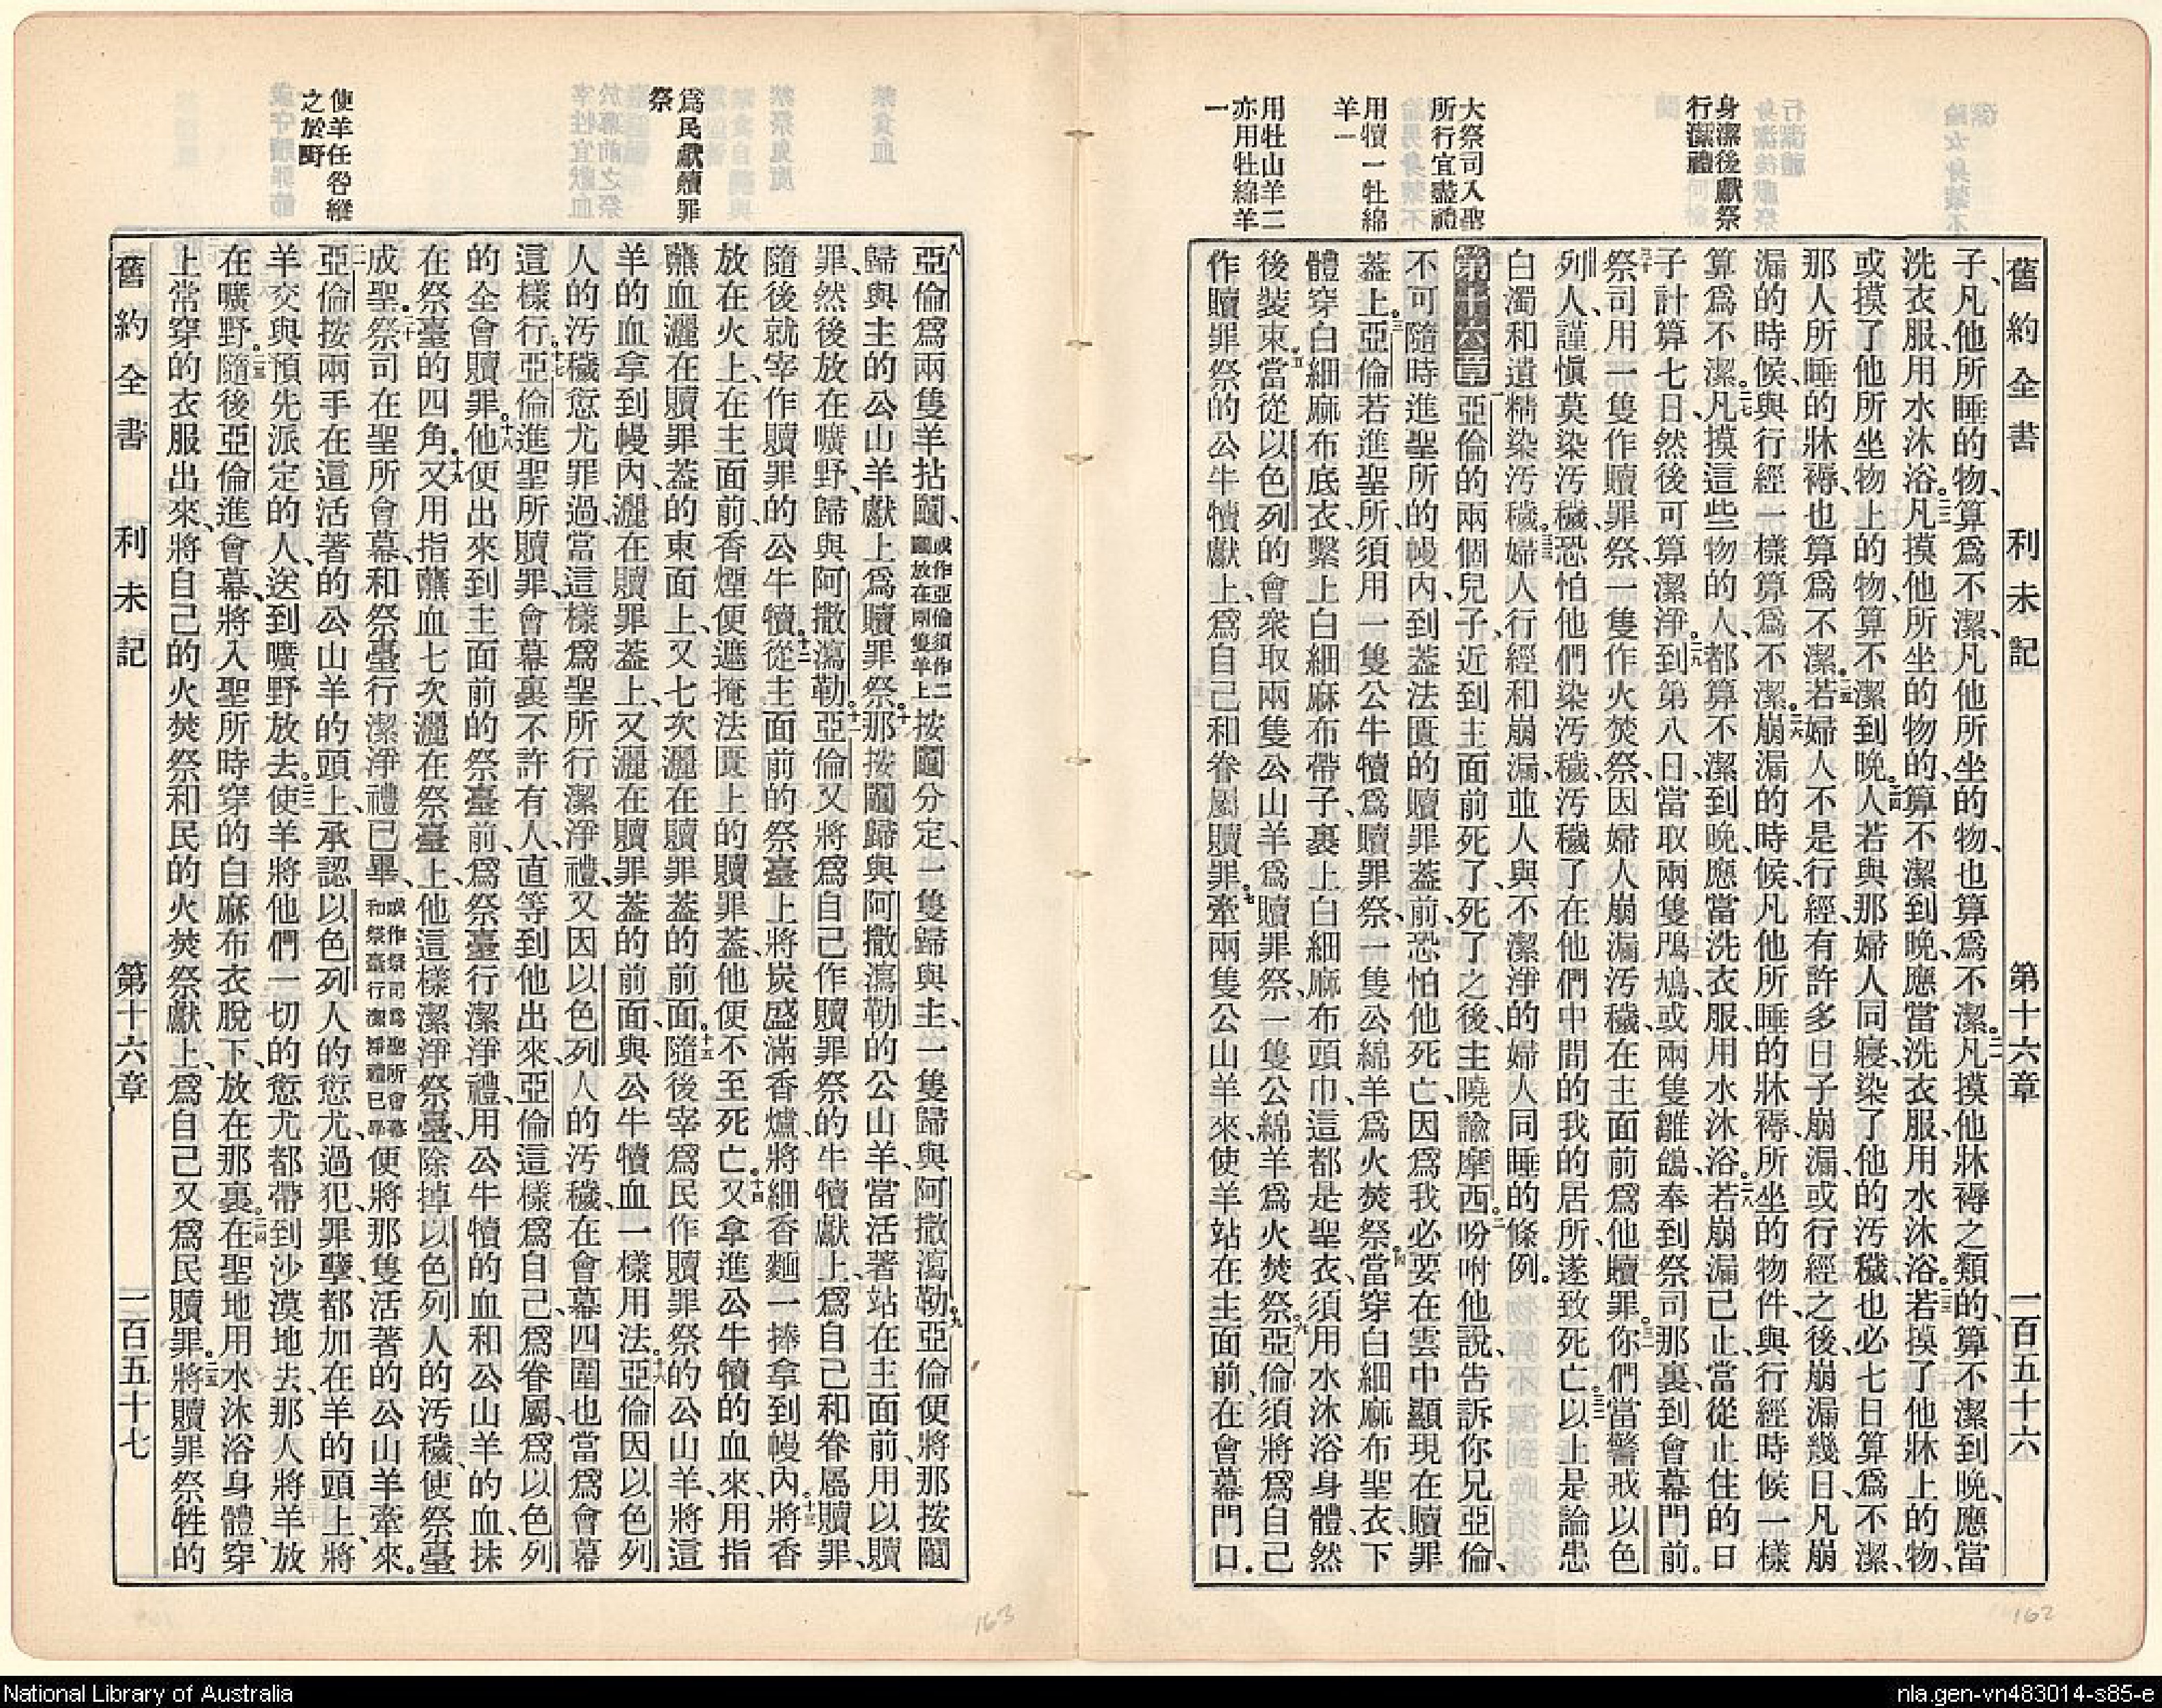 舊約全書　利未記　第十六章　一百五十六
身潔後獻祭
行潔禮
大祭司入聖
所行宜盡禮
用犢一牡綿
羊一
用牡山羊二
亦用牡綿羊
一
子、凡他所睡的物、算爲不潔、凡他所坐的物、也算爲不潔。二一凡摸他牀褥之類的、算不潔到晚、應當
洗衣服、用水沐浴。二二凡摸他所坐的物的、算不潔到晚、應當洗衣服、用水沐浴。二三若摸了他牀上的物、
或摸了他所坐物上的物、算不潔到晚。二四人若與那婦人同寢、染了他的汚穢、也必七日算爲不潔、
那人所睡的牀褥、也算爲不潔。二五若婦人不是行經、有許多日子崩漏、或行經之後、崩漏幾日、凡崩
漏的時候、與行經一樣算爲不潔。二六崩漏的時候、凡他所睡的牀褥、所坐的物件、與行經時候一樣
算爲不潔。二七凡摸這些物的人、都算不潔到晚、應當洗衣服、用水沐浴。二八若崩漏已止、當從止住的日
子計算七日、然後可算潔淨。二九到第八日、當取兩隻鳲鳩、或兩隻雛鴿、奉到祭司那裏、到會幕門前。
三十祭司用一隻作贖罪祭、一隻作火焚祭、因婦人崩漏汚穢、在主面前爲他贖罪。三一你們當警戒以色
列人、謹愼莫染汚穢、恐怕他們染汚穢、汚穢了在他們中間的我的居所、遂致死亡。三二以上是論患
白濁和遺精染汚穢。三三婦人行經和崩漏、並人與不潔淨的婦人同睡的條例。
第十六章　一亞倫的兩個兒子、近到主面前死了、死了之後、主曉諭摩西。二吩咐他說、告訴你兄亞倫、
不可隨時進聖所的幔內、到蓋法匱的贖罪蓋前、恐怕他死亡、因爲我必要在雲中顯現在贖罪
蓋上。三亞倫若進聖所、須用一隻公牛犢爲贖罪祭、一隻公綿羊爲火焚祭。四當穿白細麻布聖衣、下
體穿白細麻布底衣、繫上白細麻布帶子、裹上白細麻布頭巾、這都是聖衣、須用水沐浴身體、然
後裝束。五當從以色列的會衆取兩隻公山羊爲贖罪祭、一隻公綿羊爲火焚祭。六亞倫須將爲自己
作贖罪祭的公牛犢獻上、爲自己和眷屬贖罪。七牽兩隻公山羊來、使羊站在主面前、在會幕門口。
爲民獻贖罪
祭
使羊任咎縱
之於野
八亞倫爲兩隻羊拈鬮、或作亞倫須作二鬮放在兩隻羊上按鬮分定、一隻歸與主、一隻歸與阿撒瀉勒。九亞倫便將那按鬮
歸與主的公山羊獻上爲贖罪祭。十那按鬮歸與阿撒瀉勒的公山羊、當活著站在主面前、用以贖
罪、然後放在曠野、歸與阿撒瀉勒。十一亞倫又將爲自己作贖罪祭的牛犢獻上、爲自己和眷屬贖罪、
隨後就宰作贖罪的公牛犢。十二從主面前的祭臺上、將炭盛滿香爐、將細香麵一捧拿到幔內。十三將香
放在火上、在主面前、香煙便遮掩法匱上的贖罪蓋、他便不至死亡。十四又拿進公牛犢的血來、用指
蘸血灑在贖罪蓋的東面上、又七次灑在贖罪蓋的前面。十五隨後宰爲民作贖罪祭的公山羊、將這
羊的血拿到幔內、灑在贖罪蓋上、又灑在贖罪蓋的前面、與公牛犢血一樣用法。十六亞倫因以色列
人的汚穢愆尤罪過、當這樣爲聖所行潔淨禮、又因以色列人的汚穢、在會幕四圍、也當爲會幕
這樣行。十七亞倫進聖所贖罪、會幕裏不許有人、直等到他出來、亞倫這樣爲自己、爲眷屬、爲以色列
的全會贖罪。十八他便出來到主面前的祭臺前、爲祭臺行潔淨禮、用公牛犢的血和公山羊的血、抹
在祭臺的四角。十九又用指蘸血七次灑在祭臺上、他這樣潔淨祭臺、除掉以色列人的汚穢、使祭臺
成聖。二十祭司在聖所會幕、和祭臺行潔淨禮已畢、或作祭司爲聖所會幕和祭臺行潔淨禮已畢便將那隻活著的公山羊牽來。
二一亞倫按兩手在這活著的公山羊的頭上、承認以色列人的愆尤、過犯、罪孽、都加在羊的頭上、將
羊交與預先派定的人、送到曠野放去。二二使羊將他們一切的愆尤都帶到沙漠地去、那人將羊放
在曠野。二三隨後亞倫進會幕、將入聖所時穿的白麻布衣脫下、放在那裏。二四在聖地用水沐浴身體、穿
上常穿的衣服出來、將自己的火焚祭和民的火焚祭獻上、爲自己又爲民贖罪。二五將贖罪祭牲的
舊約全書　利未記　第十六章　一百五十七
162
163
National Library of Australia
nla.gen-vn483014-s85-e